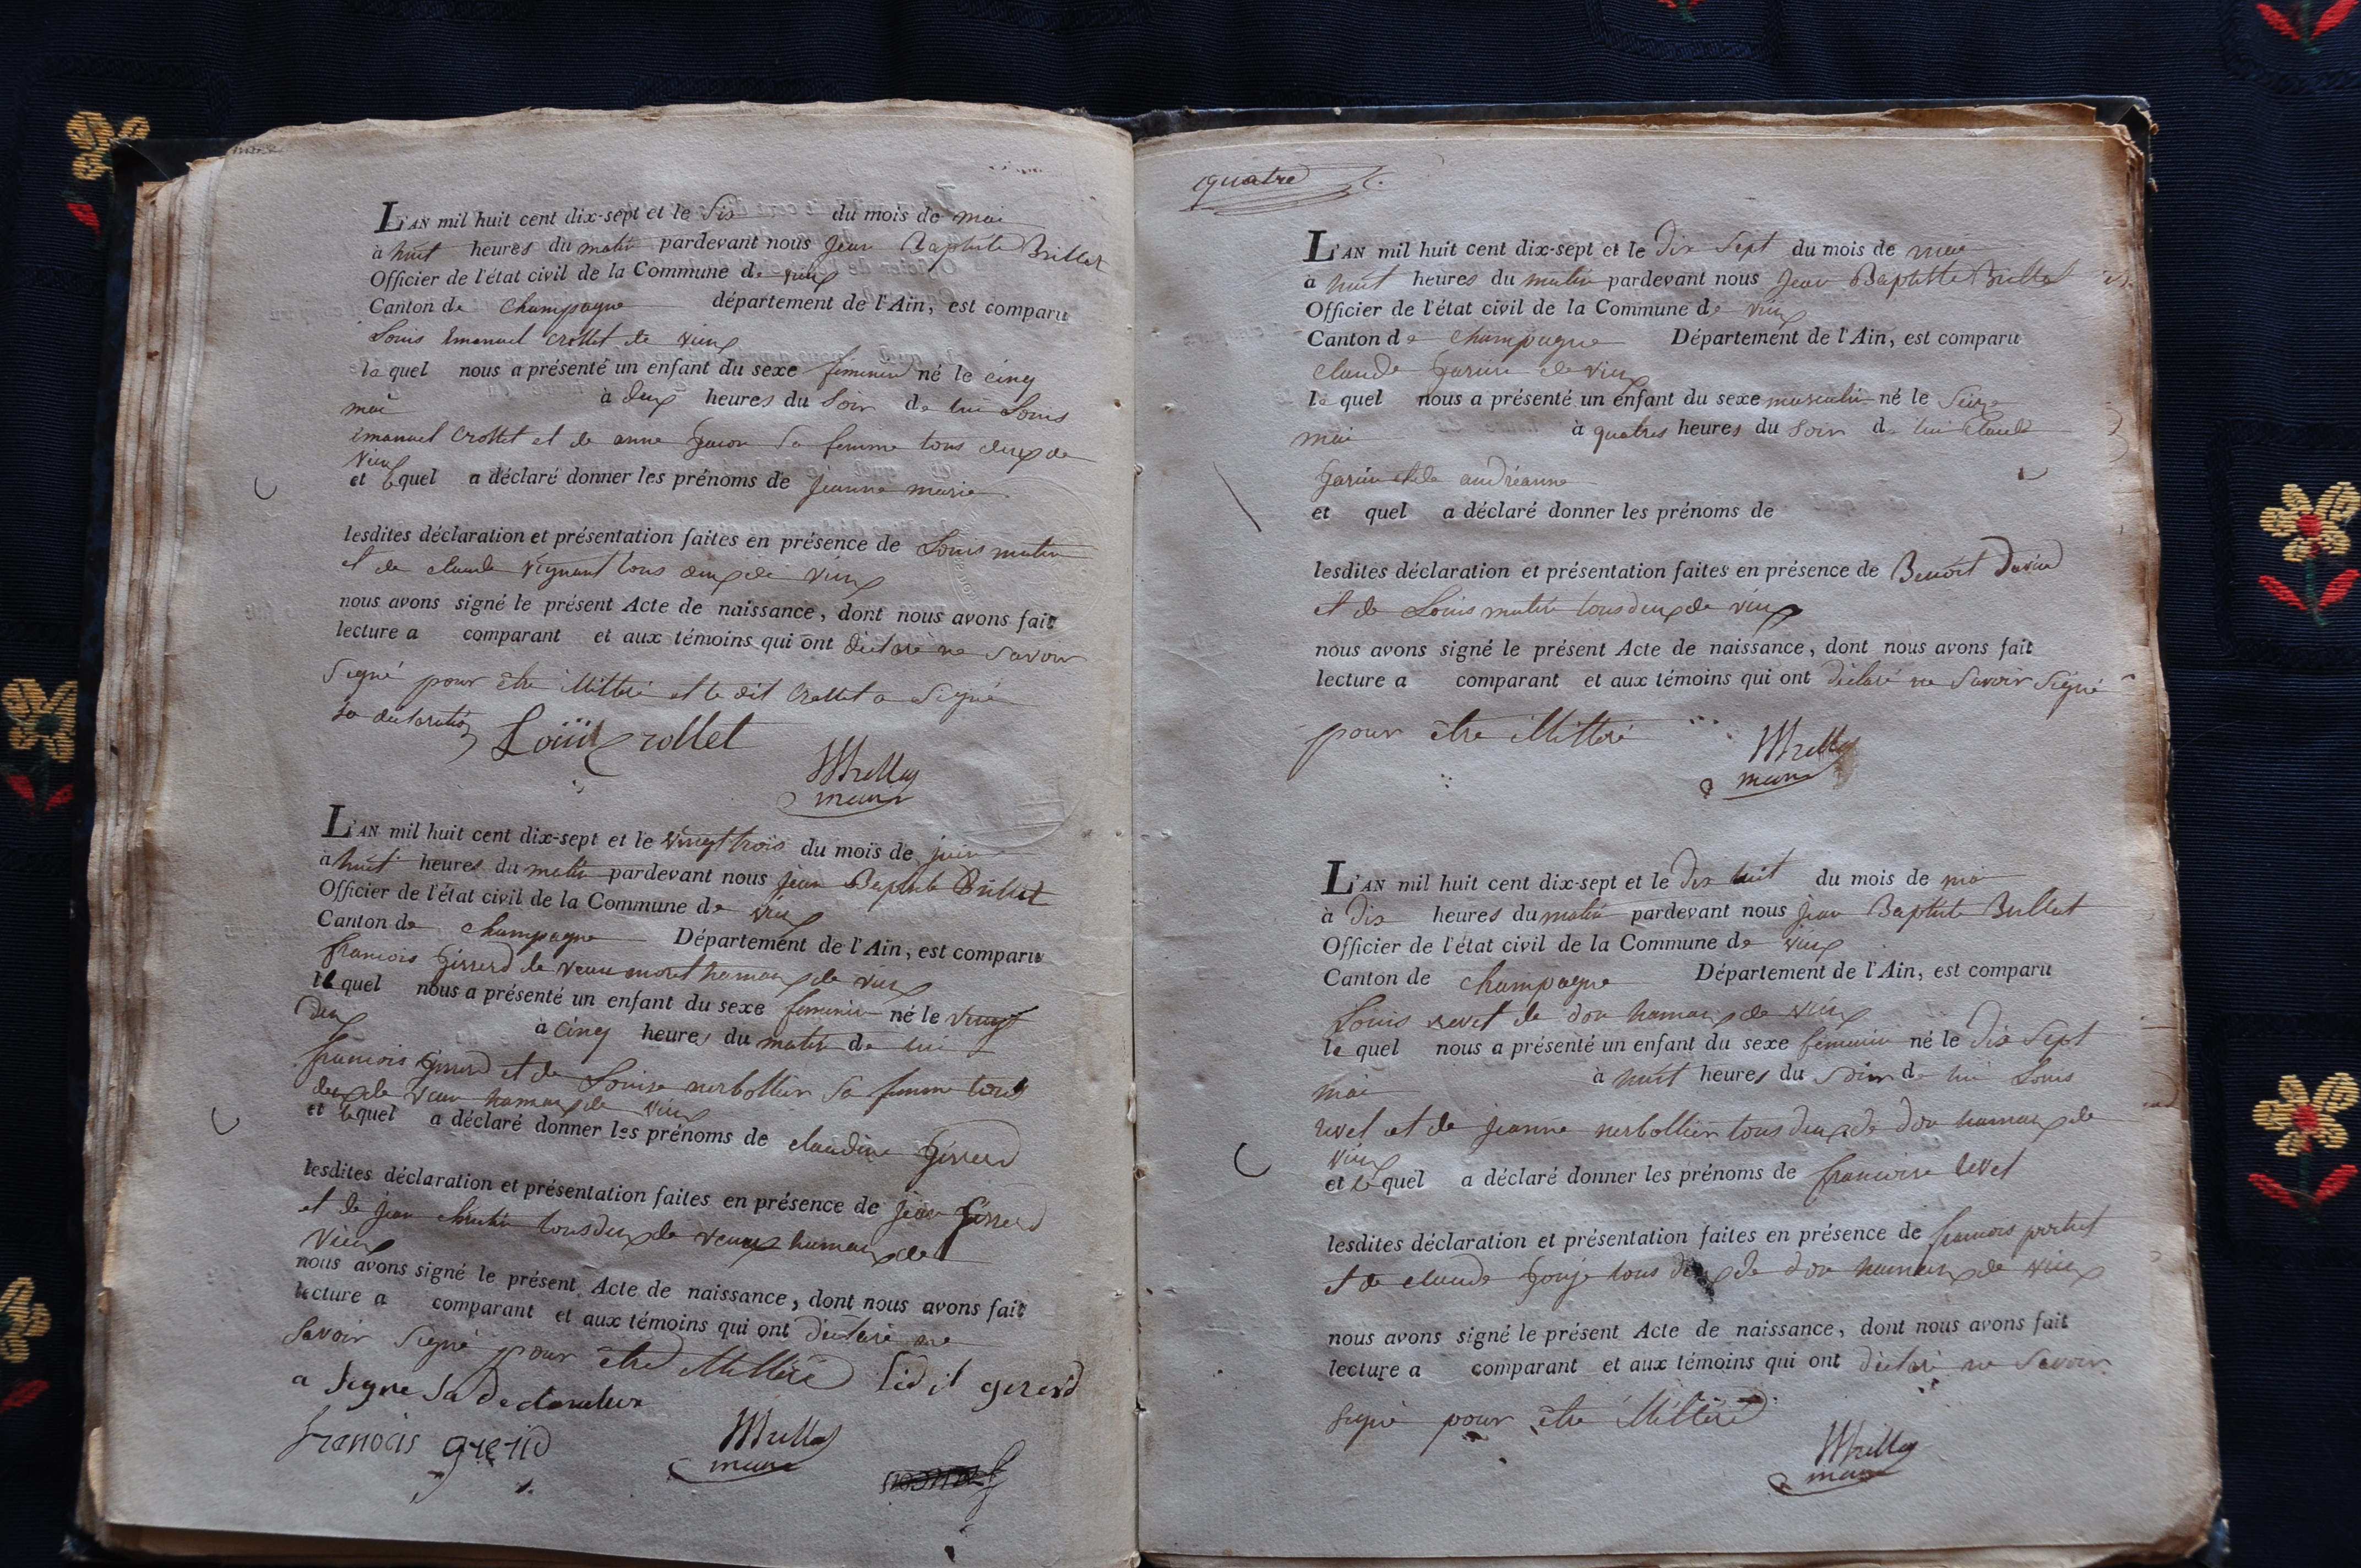 L'AN mil huit cent dix-sept et le Six du mois de mai
à huit heures du matin pardevant nous jean Baptiste Brillat
Officier de l'état civil de la Commune de vieux
Canton de Champagne département de l'Ain, est comparu
Louis Emanuel Crollet de vieux
lequel nous a présenté un enfant du sexe feminin né le cinq
mai à deux heures du Soir de lui Louis
Emanuel Crollet et de anne sa femme tous deux de
vieux
et lequel a déclaré donner les prénoms de jeanne marie
lesdites déclaration et présentation faites en présence de Louis
et de claude tous deux de vieux
nous avons signé le présent Acte de naissance, dont nous avons fait
lecture a comparant et aux témoins qui ont déclaré ne Savoir
Signé pour être illittéré et le dit Crollet a Signé
sa declaration
Louis Crollet
L'AN mil huit cent dix-sept et le vingt trois du mois de juin
à huit heures du matin pardevant nous jean Baptiste Brillat
Officier de l'état civil de la Commune de vieux
Canton de champagne Département de l'Ain, est comparu
francois de hamaux de vieux
lequel nous a présenté un enfant du sexe feminin né le vingt
deux à cinq heures du matin de lui
francois et de Louise sa femme tous
deux de hamaux de vieux
et lequel a déclaré donner les prénoms de claudine
lesdites déclaration et présentation faites en présence de jean
et de jean tous deux de hamaux de
vieux
nous avons signé le présent Acte de naissance, dont nous avons fait
lecture a comparant et aux témoins qui ont déclaré ne
Savoir Signé pour être illittéré ledit gererd
a Signe Sa
francois
maire
quatre
L'AN mil huit cent dix-sept et le Dix Sept du mois de mai
à huit heures du matin pardevant nous jean Baptiste Brillat
Officier de l'état civil de la Commune de vieux
Canton de champagne Département de l'Ain, est comparu
claude de vieux
lequel nous a présenté un enfant du sexe masculin né le Seize
mai à quatres heures du Soir de lui claude
et de andréanne
et quel a déclaré donner les prénoms de
lesdites déclaration et présentation faites en présence de Benoit David
et de Louis tous deux de vieux
nous avons signé le présent Acte de naissance, dont nous avons fait
lecture a comparant et aux témoins qui ont déclaré ne Savoir Signé
pour être illittéré
maire
L'AN mil huit cent dix-sept et le Dix huit du mois de mai
à Dix heures du matin pardevant nous jean Baptiste Brillat
Officier de l'état civil de la Commune de vieux
Canton de champagne Département de l'Ain, est comparu
Louis revet de don hamaux de vieux
lequel nous a présenté un enfant du sexe feminin né le Dix Sept
mai à huit heures du Soir de lui Louis
revet et de jeanne tous deux de don hamaux de
vieux
et lequel a déclaré donner les prénoms de francoise revet
lesdites déclaration et présentation faites en présence de francois
et de claude tous deux de don hamaux de vieux
nous avons signé le présent Acte de naissance, dont nous avons fait
lecture a comparant et aux témoins qui ont déclaré ne Savoir
Signé pour être illittéré
maire